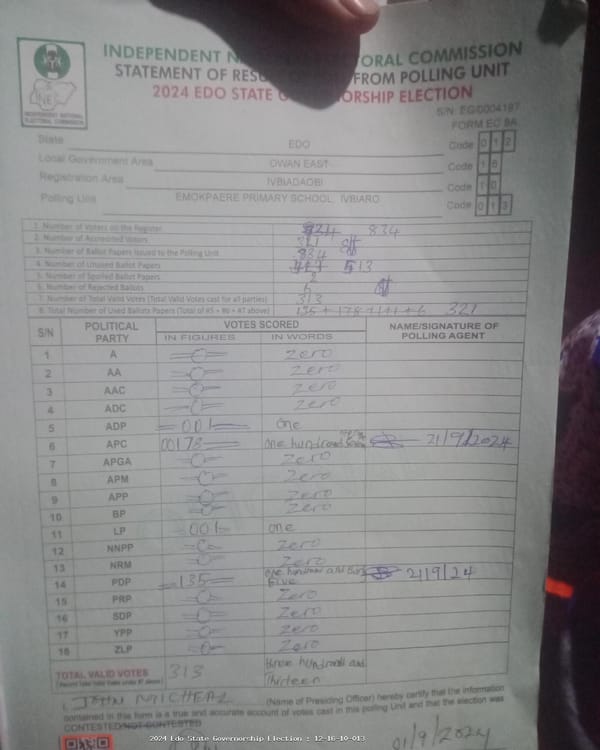 INDEPENDENT N TORAL COMMISSION
STATEMENT OF RESU FROM POLLING UNIT
2024 EDO STATE G ORSHIP ELECTION
S/N: EG/0004187
FORM EC 8A
INEC
INDEPENDENT NATIONAL ELECTORAL COMMISSION
State EDO Code 0 1 2
Local Government Area OWAN EAST Code 1 6
Registration Area IVBIADAOBI Code 1 0
Polling Unit EMOKPAERE PRIMARY SCHOOL, IVBIARO Code 0 1 3
1. Number of Voters on the Register 834
2. Number of Accredited Voters 321
3. Number of Ballot Papers Issued to the Polling Unit 834
4. Number of Unused Ballot Papers 513
5. Number of Spoiled Ballot Papers 2
6. Number of Rejected Ballots 6
7. Number of Total Valid Votes (Total Valid Votes cast for all parties) 313
8. Total Number of Used Ballots Papers (Total of #5 + #6 + #7 above) 135+178+1+1+6 321
S/N POLITICAL PARTY VOTES SCORED NAME/SIGNATURE OF POLLING AGENT
IN FIGURES IN WORDS
1 A 0 Zero
2 AA 0 Zero
3 AAC 0 Zero
4 ADC 0 Zero
5 ADP 001 One
6 APC One hundred 21/9/2024
7 APGA 0 Zero
8 APM 0 Zero
9 APP 0 Zero
10 BP 0 Zero
11 LP 001 One
12 NNPP 0 Zero
13 NRM 0 Zero
14 PDP 135 One hundred and Five 21/9/24
15 PRP 0 Zero
16 SDP 0 Zero
17 YPP 0 Zero
18 ZLP 0 Zero
TOTAL VALID VOTES 313 three hundred and Thirteen
I, JOHN MICHEAL (Name of Presiding Officer) hereby certify that the information
contained in this form is a true and accurate account of votes cast in this polling unit and that the election was
CONTESTED/NOT CONTESTED
2024 Edo State Governorship Election : 12-16-10-013